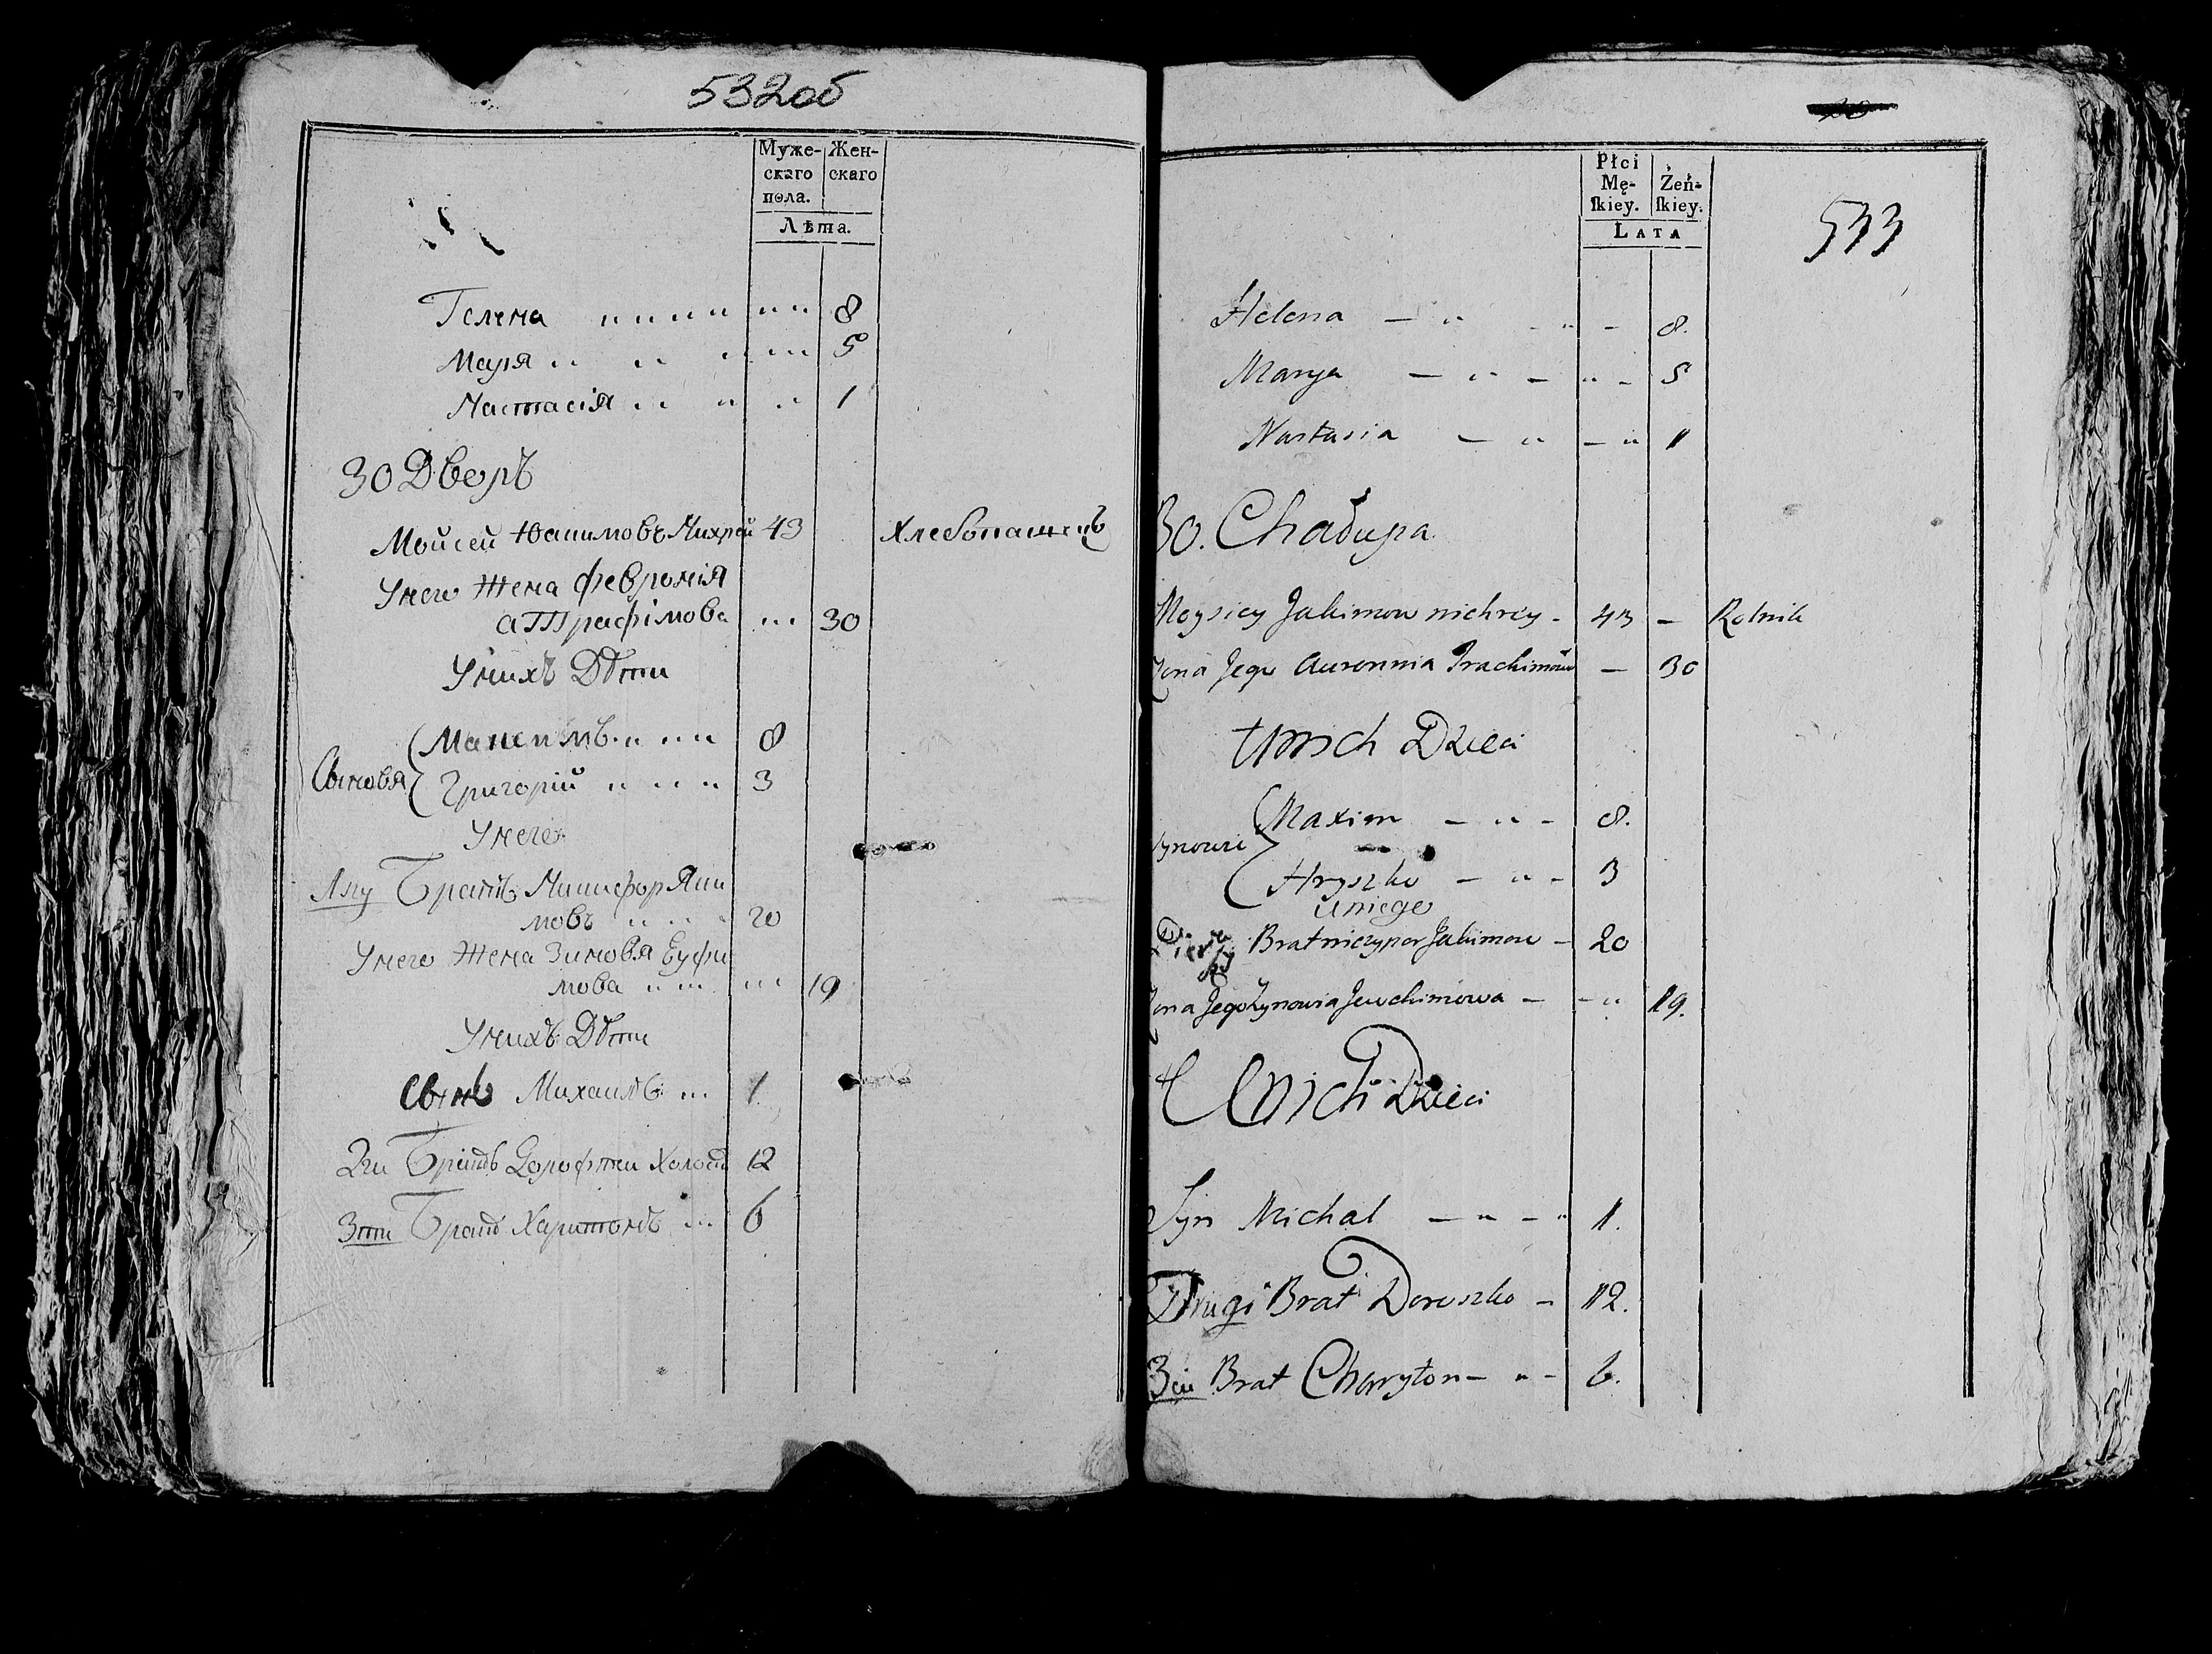 532об
Муже-
скаго
пола.
Жен-
скаго
Лѣта.
Гелена 8
Маря 5
Настасія 1
30 Дворъ
Мойсей Юкимовъ Михрей 43 Хлебопашецъ
Унего Жена Февронія
Трафімова 30
Унихъ Дѣти
Сыновя
Максимъ 8
Григорій 3
Унего
Братъ Никифор Яки
мовъ 20
Унего Жена Зиновя Еуфи
мова 19
Унихъ Дѣти
Сынъ Михаилъ 1
2ги Братъ Дорофтеи Холост 12
3тіи Братъ Харитонъ 6
Płci
Mę-
ſkiey.
Żeń-
ſkiey.
LATA
533
Helena 8.
Marya 5
Nastasia 1
30. Chałupa
Moysiey Jakimow nichrey 43 Rolnik
Żona Jego Auronnia Trachimow 30
Unich Dzieci
Synowie
Maxim 8.
Hryszko 3
uniego
Brat niczypor Jakimow 20
Żona Jego Zynowia Jewchimowa 19.
Unich Dzieci
Syn Michal 1.
Drugi Brat Doroszko 12.
3ci Brat Charyton 6.